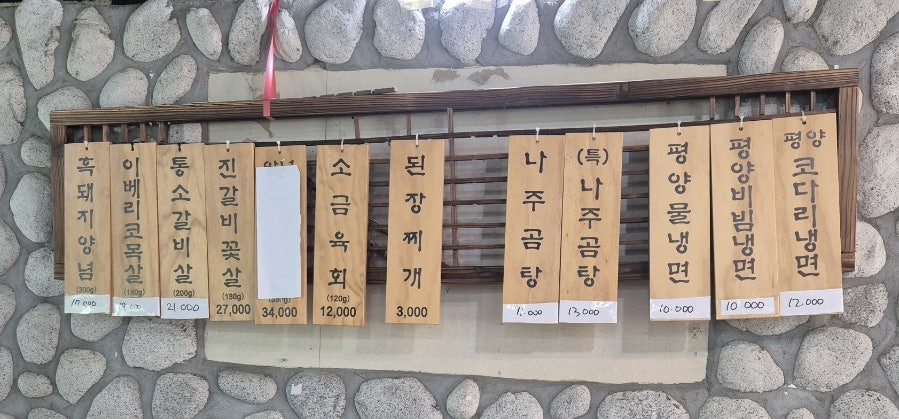 흑돼지양념
(300g)
이베리코목살
(180g)
통소갈비살
(200g)
21.000
진갈비꽃살
(180g)
27,000
34,000
소금육회
(120g)
12,000
된장찌개
3,000
나주곰탕
(특)나주곰탕
13.000
평양물냉면
10.000
평양비빔냉면
10.000
평양
코다리냉면
12.000